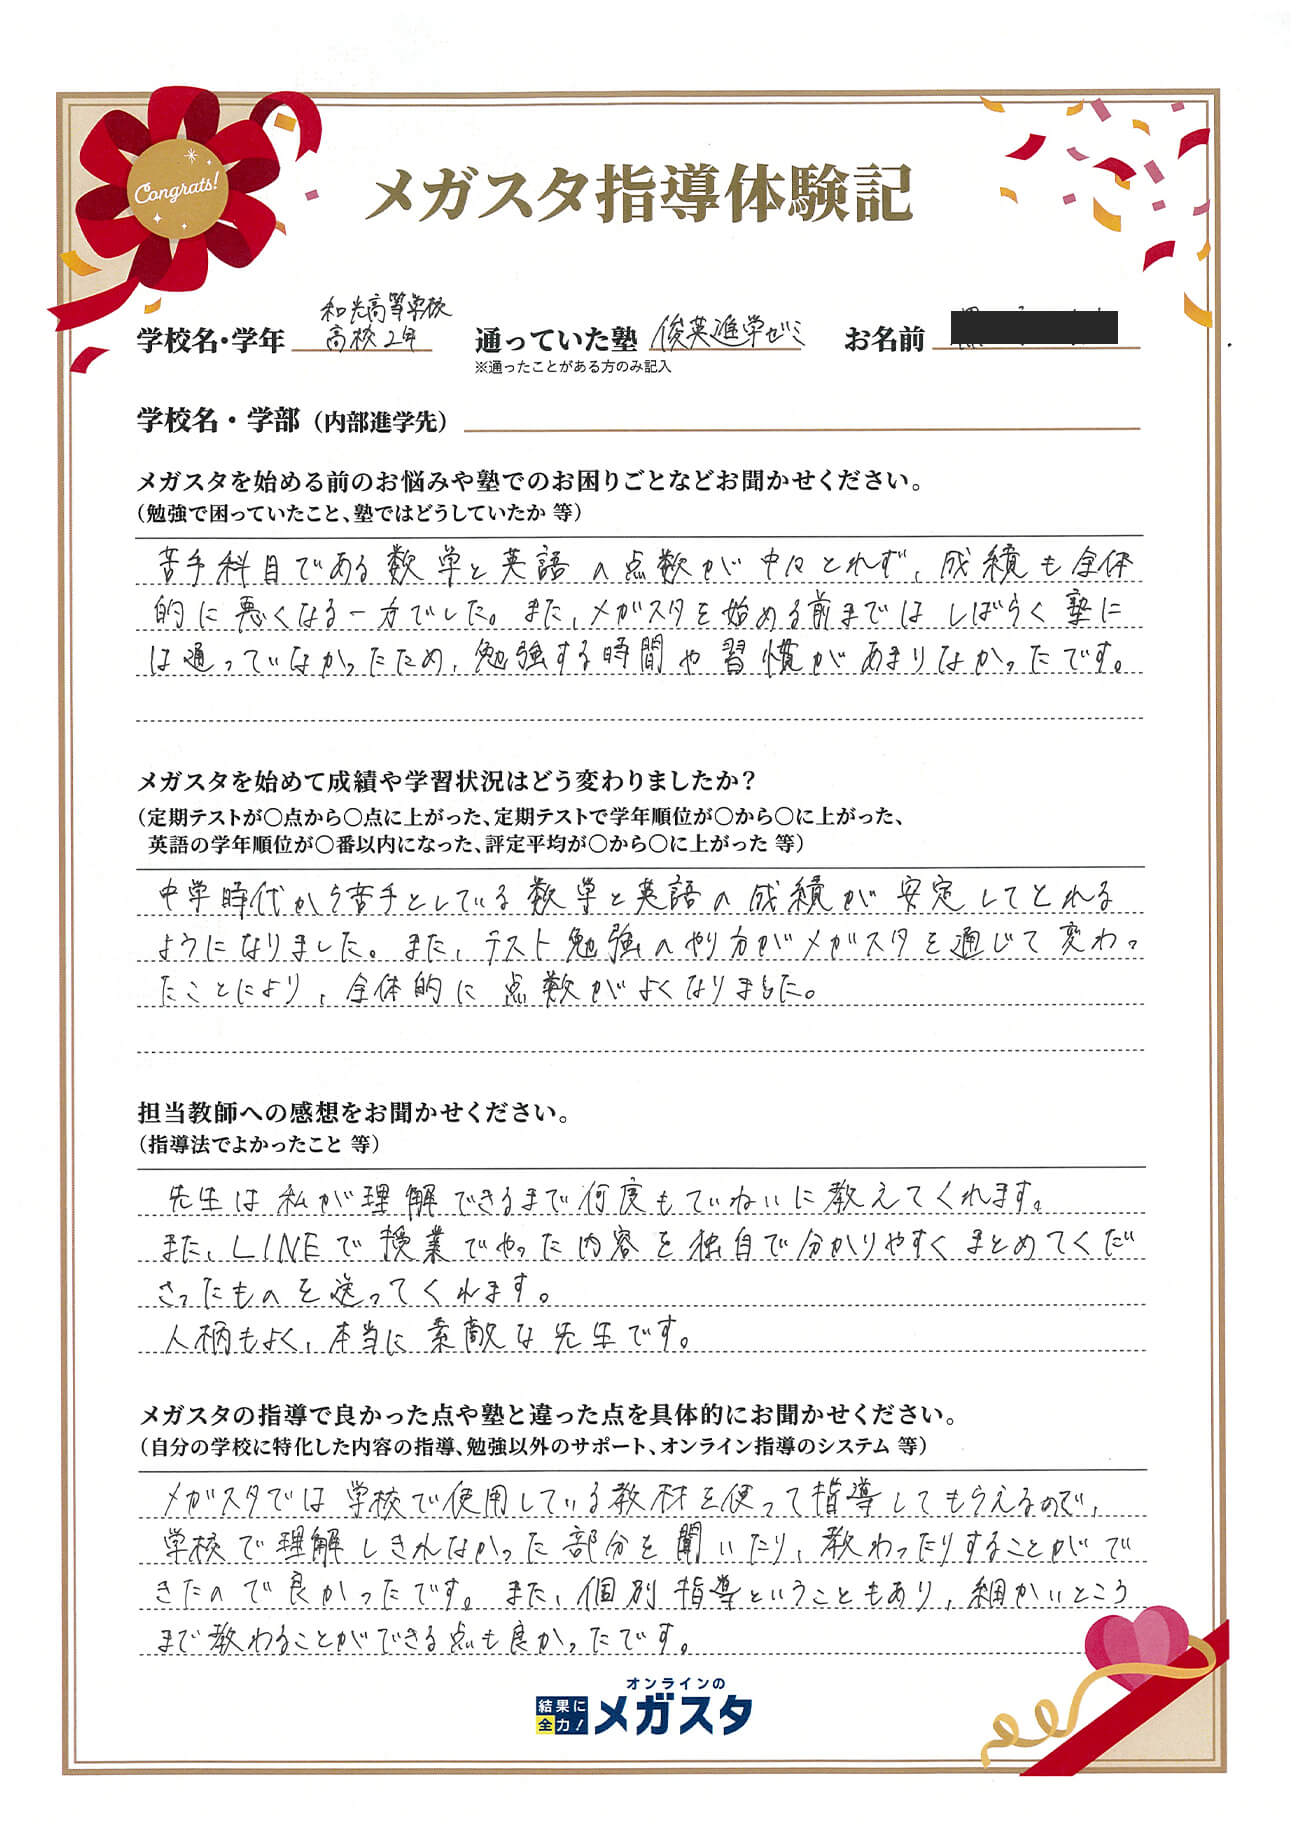 Congrats!
メガスタ指導体験記
和光高等学校
学校名・学年 高校2年 通っていた塾 俊英進学ゼミ お名前
※通ったことがある方のみ記入
学校名・学部（内部進学先）
メガスタを始める前のお悩みや塾でのお困りごとなどお聞かせください。
（勉強で困っていたこと、塾ではどうしていたか 等）
苦手科目である数学と英語の点数が中々とれず、成績も全体
的に悪くなる一方でした。また、メガスタを始める前まではしばらく塾に
は通っていなかったため、勉強する時間や習慣があまりなかったです。
メガスタを始めて成績や学習状況はどう変わりましたか？
（定期テストが〇点から〇点に上がった、定期テストで学年順位が〇から〇に上がった、
英語の学年順位が〇番以内になった、評定平均が〇から〇に上がった 等）
中学時代から苦手としている数学と英語の成績が安定してとれる
ようになりました。また、テスト勉強のやり方がメガスタを通じて変わっ
たことにより、全体的に点数がよくなりました。
担当教師への感想をお聞かせください。
（指導法でよかったこと 等）
先生は私が理解できるまで何度もていねいに教えてくれます。
また、LINEで授業でやった内容を独自で分かりやすくまとめてくだ
さったものを送ってくれます。
人柄もよく、本当に素敵な先生です。
メガスタの指導で良かった点や塾と違った点を具体的にお聞かせください。
（自分の学校に特化した内容の指導、勉強以外のサポート、オンライン指導のシステム 等）
メガスタでは学校で使用している教材を使って指導してもらえるので、
学校で理解しきれなかった部分を聞いたり、教わったりすることがで
きたので良かったです。また、個別指導ということもあり、細かいところ
まで教わることができる点も良かったです。
オンラインの
結果に全力！メガスタ